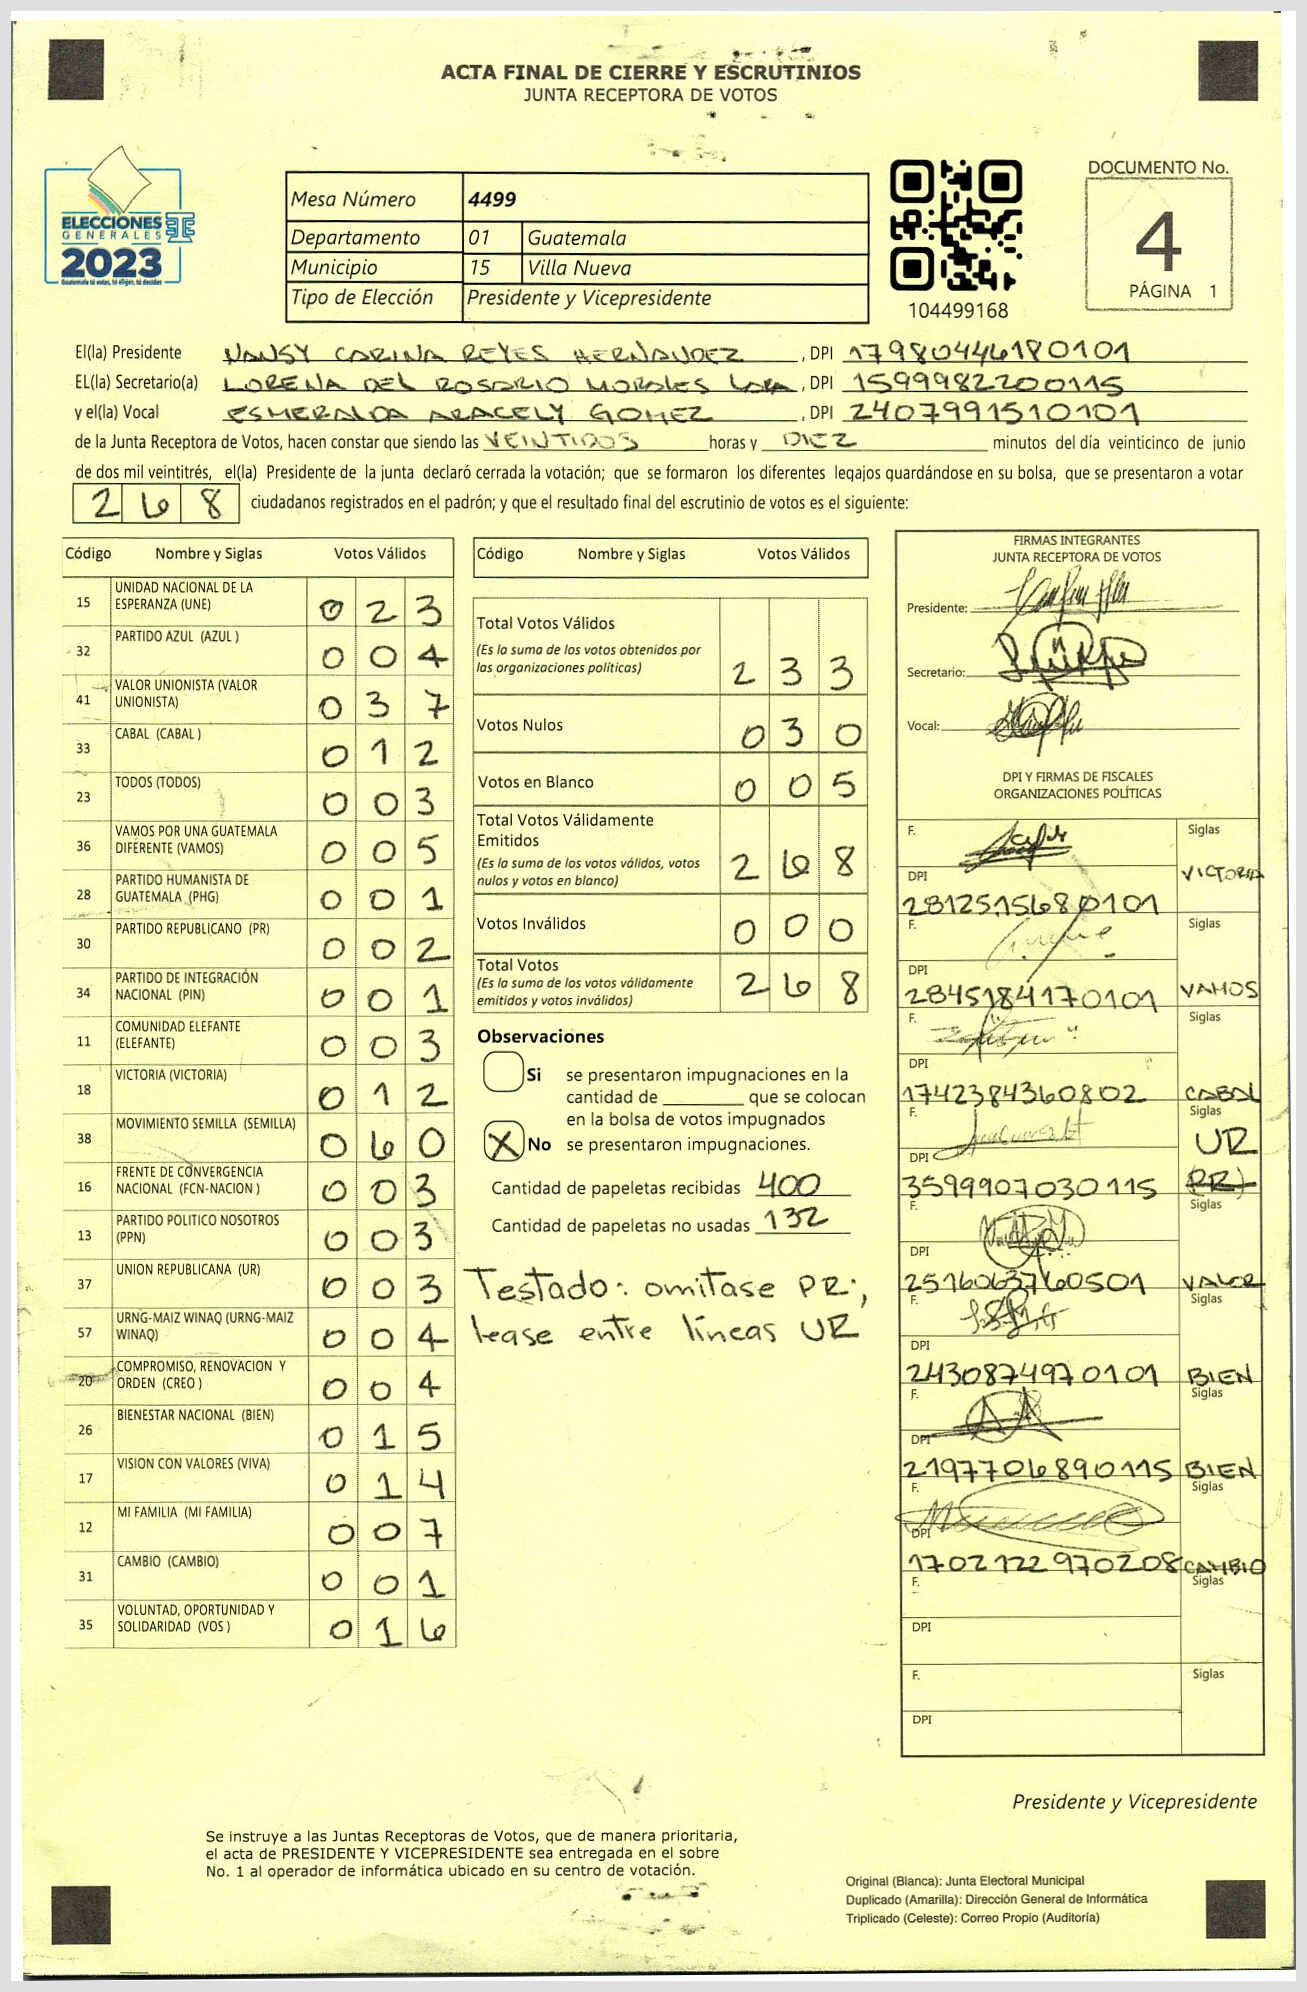 ACTA FINAL DE CIERRE Y ESCRUTINIOS
JUNTA RECEPTORA DE VOTOS
ELECCIONES
GENERALES
2023
Guatemala tú votas, tú eliges, tú decides
Mesa Número 4499
Departamento 01 Guatemala
Municipio 15 Villa Nueva
Tipo de Elección Presidente y Vicepresidente
104499168
DOCUMENTO No.
4
PÁGINA 1
El(la) Presidente NANSY CARINA REYES HERNANDEZ , DPI 1798044618 0101
EL(la) Secretario(a) LORENA DEL ROSARIO MORALES LARA , DPI 1599982200115
y el(la) Vocal ESMERALDA ARACELY GOMEZ , DPI 2407991510101
de la Junta Receptora de Votos, hacen constar que siendo las VEINTIDOS horas y DIEZ minutos del día veinticinco de junio
de dos mil veintitrés, el(la) Presidente de la junta declaró cerrada la votación; que se formaron los diferentes legajos guardándose en su bolsa, que se presentaron a votar
268 ciudadanos registrados en el padrón; y que el resultado final del escrutinio de votos es el siguiente:
Código Nombre y Siglas Votos Válidos
15 UNIDAD NACIONAL DE LA ESPERANZA (UNE) 0 2 3
32 PARTIDO AZUL (AZUL ) 0 0 4
41 VALOR UNIONISTA (VALOR UNIONISTA) 0 3 7
33 CABAL (CABAL ) 0 1 2
23 TODOS (TODOS) 0 0 3
36 VAMOS POR UNA GUATEMALA DIFERENTE (VAMOS) 0 0 5
28 PARTIDO HUMANISTA DE GUATEMALA (PHG) 0 0 1
30 PARTIDO REPUBLICANO (PR) 0 0 2
34 PARTIDO DE INTEGRACIÓN NACIONAL (PIN) 0 0 1
11 COMUNIDAD ELEFANTE (ELEFANTE) 0 0 3
18 VICTORIA (VICTORIA) 0 1 2
38 MOVIMIENTO SEMILLA (SEMILLA) 0 6 0
16 FRENTE DE CONVERGENCIA NACIONAL (FCN-NACION ) 0 0 3
13 PARTIDO POLITICO NOSOTROS (PPN) 0 0 3
37 UNION REPUBLICANA (UR) 0 0 3
57 URNG-MAIZ WINAQ (URNG-MAIZ WINAQ) 0 0 4
20 COMPROMISO, RENOVACION Y ORDEN (CREO ) 0 0 4
26 BIENESTAR NACIONAL (BIEN) 0 1 5
17 VISION CON VALORES (VIVA) 0 1 4
12 MI FAMILIA (MI FAMILIA) 0 0 7
31 CAMBIO (CAMBIO) 0 0 1
35 VOLUNTAD, OPORTUNIDAD Y SOLIDARIDAD (VOS ) 0 1 6
Código Nombre y Siglas Votos Válidos
Total Votos Válidos 2 3 3
(Es la suma de los votos obtenidos por
las organizaciones políticas)
Votos Nulos 0 3 0
Votos en Blanco 0 0 5
Total Votos Válidamente
Emitidos 2 6 8
(Es la suma de los votos válidos, votos
nulos y votos en blanco)
Votos Inválidos 0 0 0
Total Votos 2 6 8
(Es la suma de los votos válidamente
emitidos y votos inválidos)
Observaciones
Si se presentaron impugnaciones en la
cantidad de ________ que se colocan
en la bolsa de votos impugnados
X No se presentaron impugnaciones.
Cantidad de papeletas recibidas 400
Cantidad de papeletas no usadas 132
Testado: omitase PR;
lease entre líneas UR
FIRMAS INTEGRANTES
JUNTA RECEPTORA DE VOTOS
Presidente:
Secretario:
Vocal:
DPI Y FIRMAS DE FISCALES
ORGANIZACIONES POLÍTICAS
F. Siglas
DPI VICTORIA
2812515680101
F. Siglas
DPI
2845184170101 VAMOS
F. Siglas
DPI
1742384360802 CABAL
F. Siglas
UR
DPI
3599907030115 (PR)
F. Siglas
DPI
2516063760501 VALOR
F. Siglas
DPI
2430874970101 BIEN
F. Siglas
DPI
2197706890115 BIEN
F. Siglas
DPI
1702122970208 CAMBIO
F. Siglas
DPI
F. Siglas
DPI
Presidente y Vicepresidente
Se instruye a las Juntas Receptoras de Votos, que de manera prioritaria,
el acta de PRESIDENTE Y VICEPRESIDENTE sea entregada en el sobre
No. 1 al operador de informática ubicado en su centro de votación.
Original (Blanca): Junta Electoral Municipal
Duplicado (Amarilla): Dirección General de Informática
Triplicado (Celeste): Correo Propio (Auditoría)